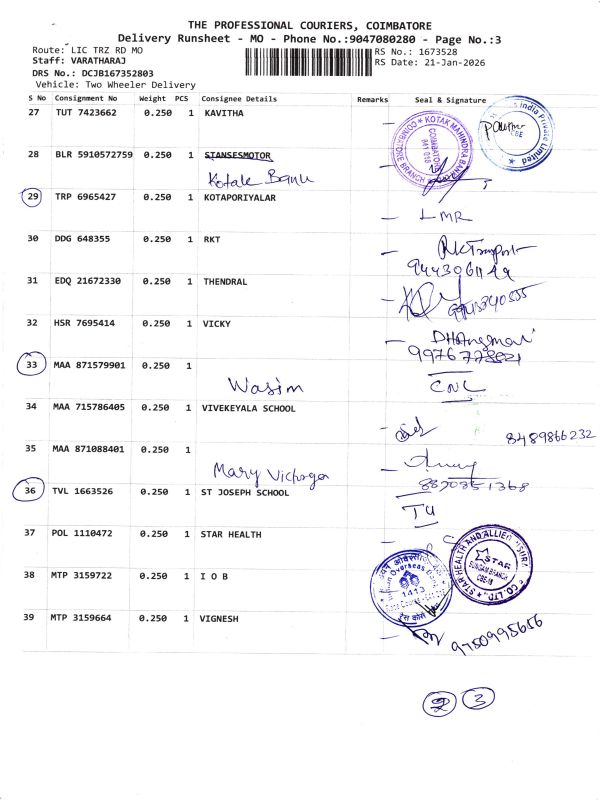 THE PROFESSIONAL COURIERS, COIMBATORE
Delivery Runsheet - MO - Phone No.:9047080280 - Page No.:3
Route: LIC TRZ RD MO RS No.: 1673528
Staff: VARATHARAJ RS Date: 21-Jan-2026
DRS No.: DCJB167352803
Vehicle: Two Wheeler Delivery
S No Consignment No Weight PCS Consignee Details Remarks Seal & Signature
27 TUT 7423662 0.250 1 KAVITHA
India Private Limited
KOTAK MAHINDRA BANK
COIMBATORE BRANCH
COIMBATORE
641 018
28 BLR 5910572759 0.250 1 STANSESMOTOR
Kotak Bank
29 TRP 6965427 0.250 1 KOTAPORIYALAR
LMR
30 DDG 648355 0.250 1 RKT
RKTransport
31 EDQ 21672330 0.250 1 THENDRAL
32 HSR 7695414 0.250 1 VICKY
33 MAA 871579901 0.250 1
Wasim CNL
34 MAA 715786405 0.250 1 VIVEKEYALA SCHOOL
8489866232
35 MAA 871088401 0.250 1
Mary Victoria
36 TVL 1663526 0.250 1 ST JOSEPH SCHOOL
37 POL 1110472 0.250 1 STAR HEALTH
STAR HEALTH AND ALLIED
STAR
CBE-18
38 MTP 3159722 0.250 1 I O B
1413
39 MTP 3159664 0.250 1 VIGNESH
9750995656
2 3